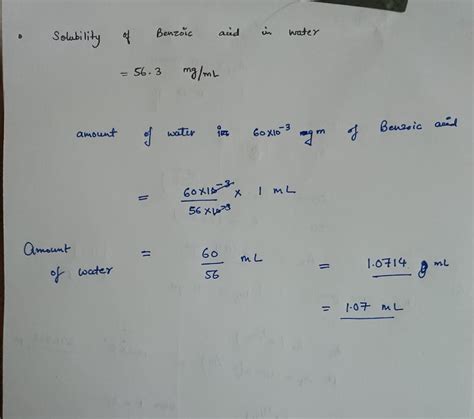 • Solubility of Benzoic acid in water
= 56.3 mg/mL
amount of water in 60×10⁻³ gm of Benzoic acid
= 60×10⁻³ / 56×10⁻³ × 1 mL
Amount of water = 60/56 mL = 1.0714 mL
= 1.07 mL